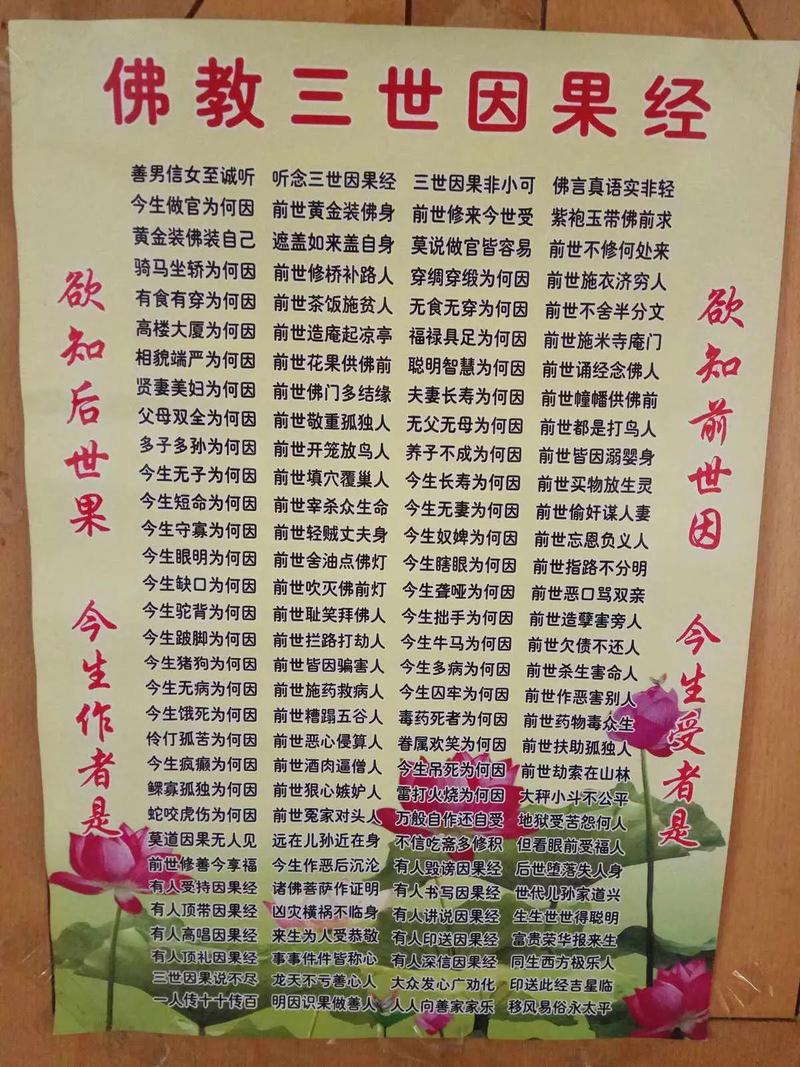 佛教三世因果经
善男信女至诚听 听念三世因果经 三世因果非小可 佛言真语实非轻
今生做官为何因 前世黄金装佛身 前世修来今世受 紫袍玉带佛前求
黄金装佛装自己 遮盖如来盖自身 莫说做官皆容易 前世不修何处来
骑马坐轿为何因 前世修桥补路人 穿绸穿缎为何因 前世施衣济穷人
有食有穿为何因 前世茶饭施贫人 无食无穿为何因 前世不舍半分文
高楼大厦为何因 前世造庵起凉亭 福禄具足为何因 前世施米寺庵门
相貌端严为何因 前世花果供佛前 聪明智慧为何因 前世诵经念佛人
贤妻美妇为何因 前世佛门多结缘 夫妻长寿为何因 前世幢幡供佛前
父母双全为何因 前世敬重孤独人 无父无母为何因 前世都是打鸟人
多子多孙为何因 前世开笼放鸟人 养子不成为何因 前世皆因溺婴身
今生无子为何因 前世填穴覆巢人 今生长寿为何因 前世买物放生灵
今生短命为何因 前世宰杀众生命 今生无妻为何因 前世偷奸谋人妻
今生守寡为何因 前世轻贱丈夫身 今生奴婢为何因 前世忘恩负义人
今生眼明为何因 前世舍油点佛灯 今生瞎眼为何因 前世指路不分明
今生缺口为何因 前世吹灭佛前灯 今生聋哑为何因 前世恶口骂双亲
今生驼背为何因 前世耻笑拜佛人 今生拙手为何因 前世造孽害旁人
今生跛脚为何因 前世拦路打劫人 今生牛马为何因 前世欠债不还人
今生猪狗为何因 前世皆因骗害人 今生多病为何因 前世杀生害命人
今生无病为何因 前世施药救病人 今生囚牢为何因 前世作恶害别人
今生饿死为何因 前世糟蹋五谷人 毒药死者为何因 前世药物毒众生
伶仃孤苦为何因 前世恶心侵算人 眷属欢笑为何因 前世扶助孤独人
今生疯癫为何因 前世酒肉逼僧人 今生吊死为何因 前世劫索在山林
鳏寡孤独为何因 前世狠心嫉妒人 雷打火烧为何因 大秤小斗不公平
蛇咬虎伤为何因 前世冤家对头人 万般自作还自受 地狱受苦怨何人
莫道因果无人见 远在儿孙近在身 不信吃斋多修积 但看眼前受福人
前世修善今享福 今生作恶后沉沦 有人毁谤因果经 后世堕落失人身
有人受持因果经 诸佛菩萨作证明 有人书写因果经 世代儿孙家道兴
有人顶带因果经 凶灾横祸不临身 有人讲说因果经 生生世世得聪明
有人高唱因果经 来生为人受恭敬 有人印送因果经 富贵荣华报来生
有人顶礼因果经 事事件件皆称心 有人深信因果经 同生西方极乐人
三世因果说不尽 龙天不亏善心人 大众发心广劝化 印送此经吉星临
一人传十十传百 明因识果做善人 人人向善家家乐 移风易俗永太平
欲知前世因 今生受者是
欲知后世果 今生作者是